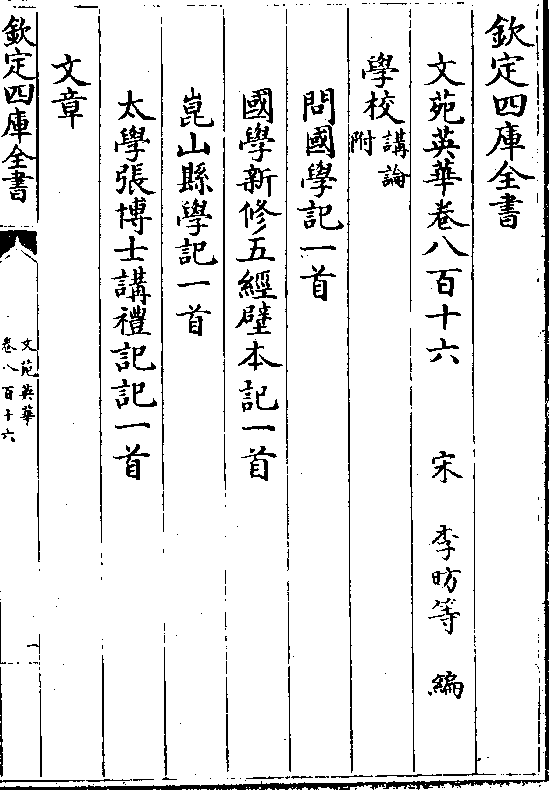 欽定四庫全書
文苑英華卷八百十六 宋 李昉等 編
學校講論附
問國學記一首
國學新修五經壁本記一首
崑山縣學記一首
太學張博士講禮記記一首
文章
欽定四庫全書
文苑英華
卷八百十六
一